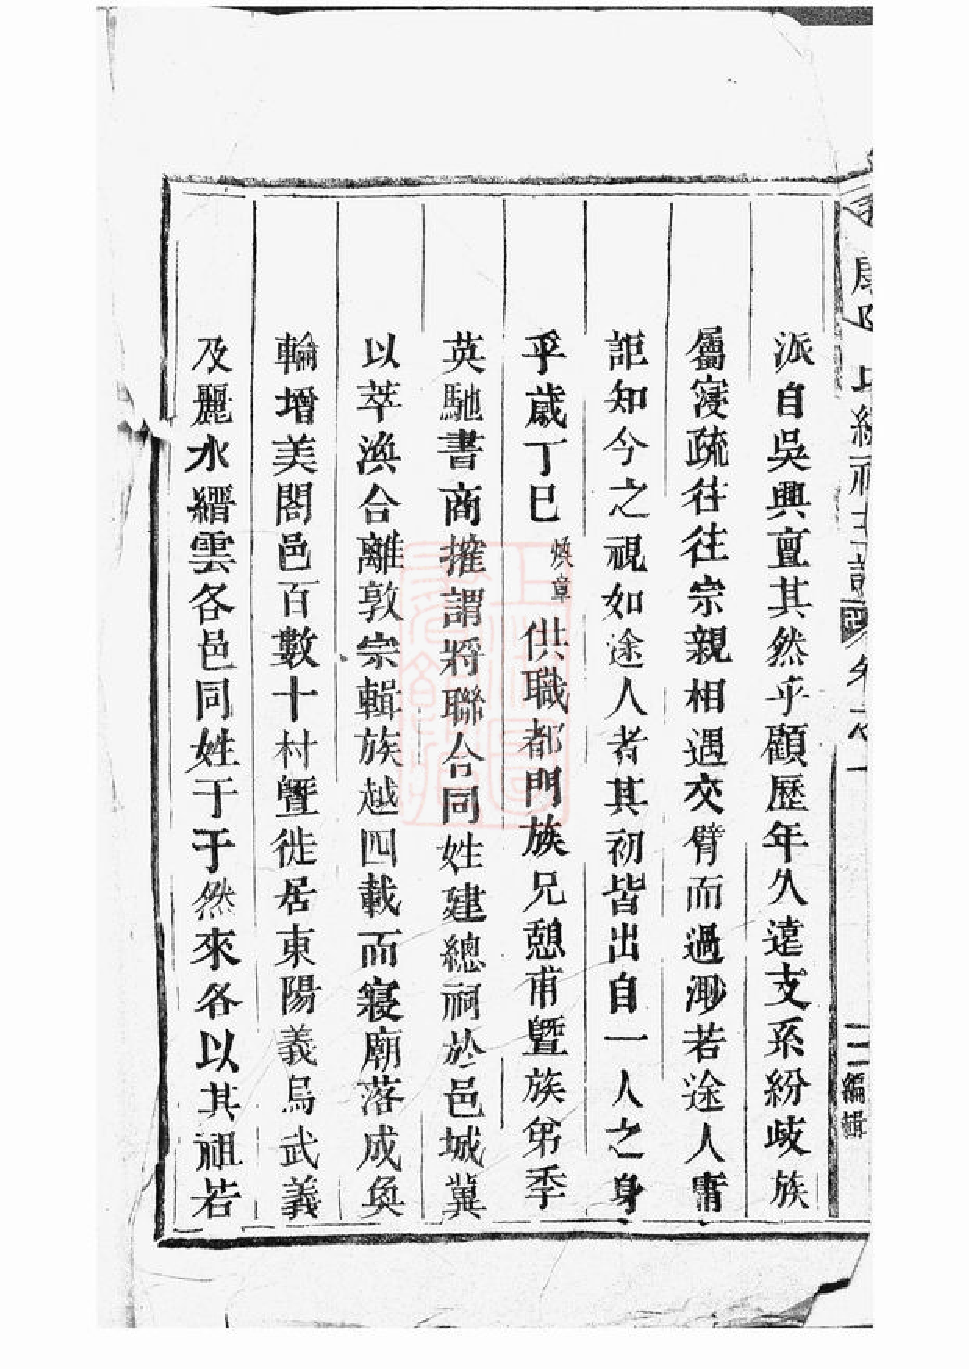 派自吳興亶其然乎顧歷年久遠支系紛歧族
屬寖疏往往宗親相遇交臂而過渺若途人庸
詎知今之視如途人者其初皆出自一人之身
乎歲丁巳煥章供職都門族兄憩甫暨族弟季
英馳書商搉謂將聯合同姓建總祠於邑城冀
以萃渙合離敦宗輯族越四載而寢廟落成奐
輪增美閤邑百數十村曁徙居東陽義烏武義
及麗水縉雲各邑同姓于于然來各以其祖若
編輯